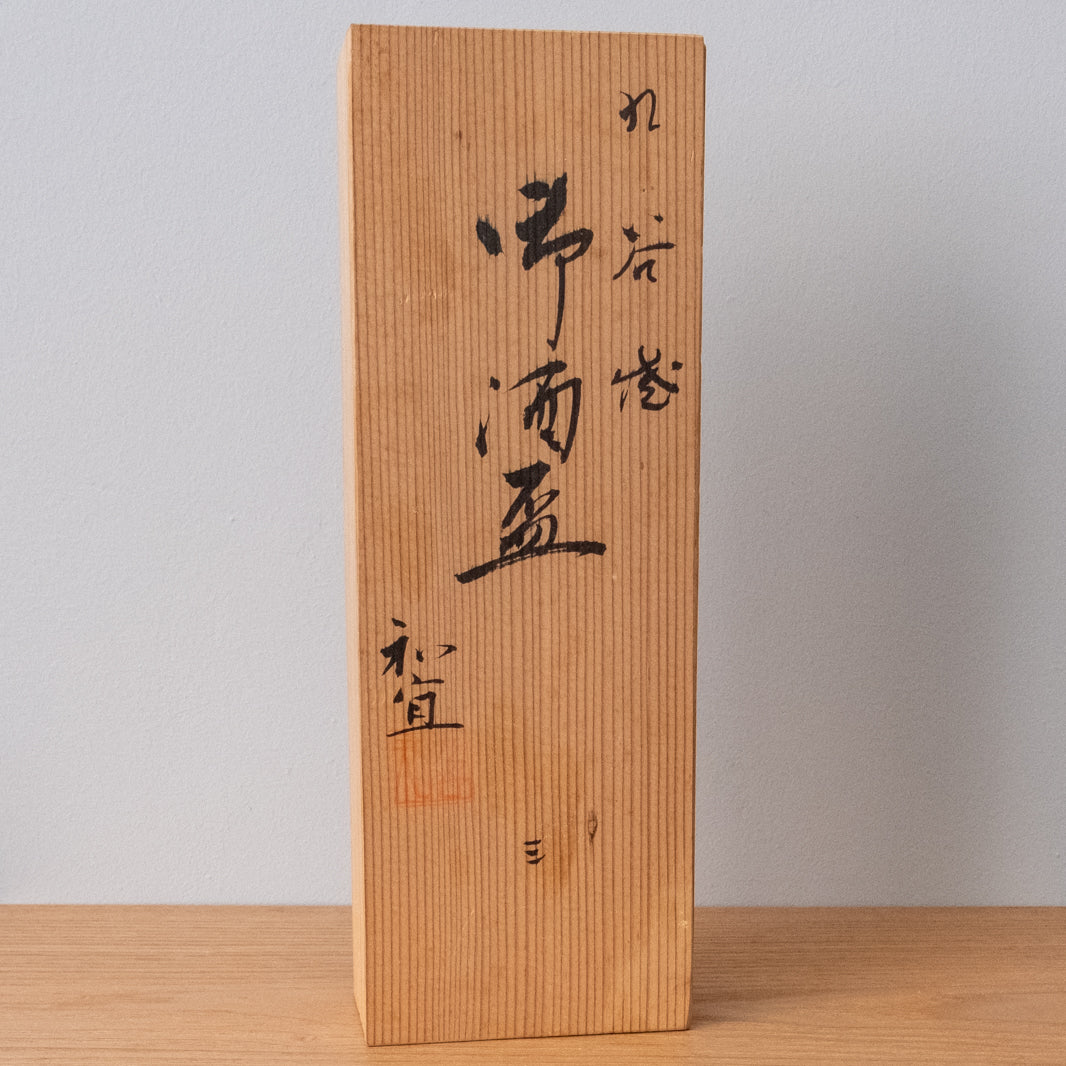 九谷焼
御酒盃
和宜
三